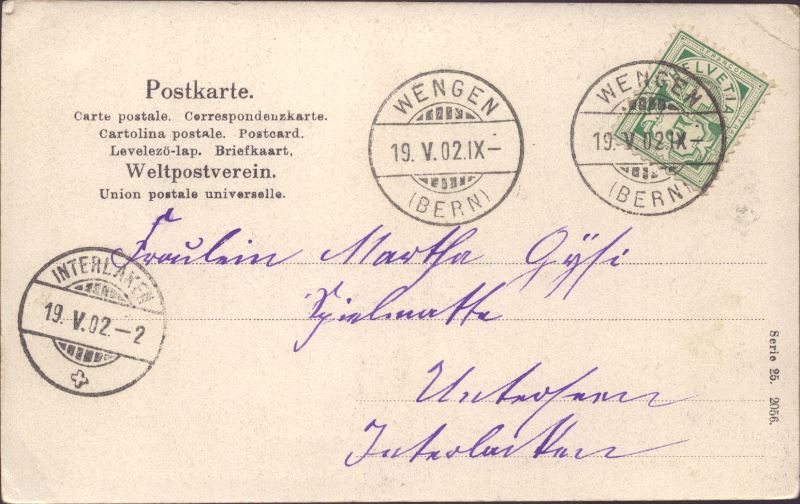 Postkarte.
Carte postale. Correspondenzkarte.
Cartolina postale. Postcard.
Levelezö-lap. Briefkaart,
Weltpostverein.
Union postale universelle.
WENGEN
19. V. 02. IX–
(BERN)
WENGEN
19. V. 02. IX–
(BERN)
FRANCO
HELVETIA
INTERLAKEN
19. V. 02. – 2
Fräulein Martha Gysi
Spielmatte
Unterseen
Interlacken
Serie 25. 2056.